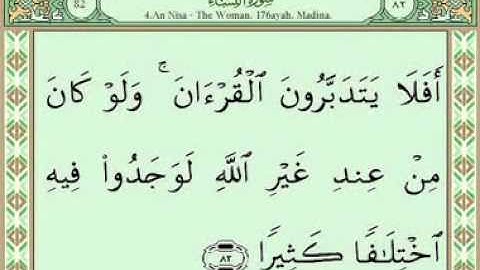 82 سورة النساء ٨٢
4.An Nisa - The Woman. 176ayah. Madina.
أَفَلَا يَتَدَبَّرُونَ ٱلْقُرْءَانَ ۚ وَلَوْ كَانَ
مِنْ عِندِ غَيْرِ ٱللَّهِ لَوَجَدُوا۟ فِيهِ
ٱخْتِلَـٰفًا كَثِيرًا ٨٢